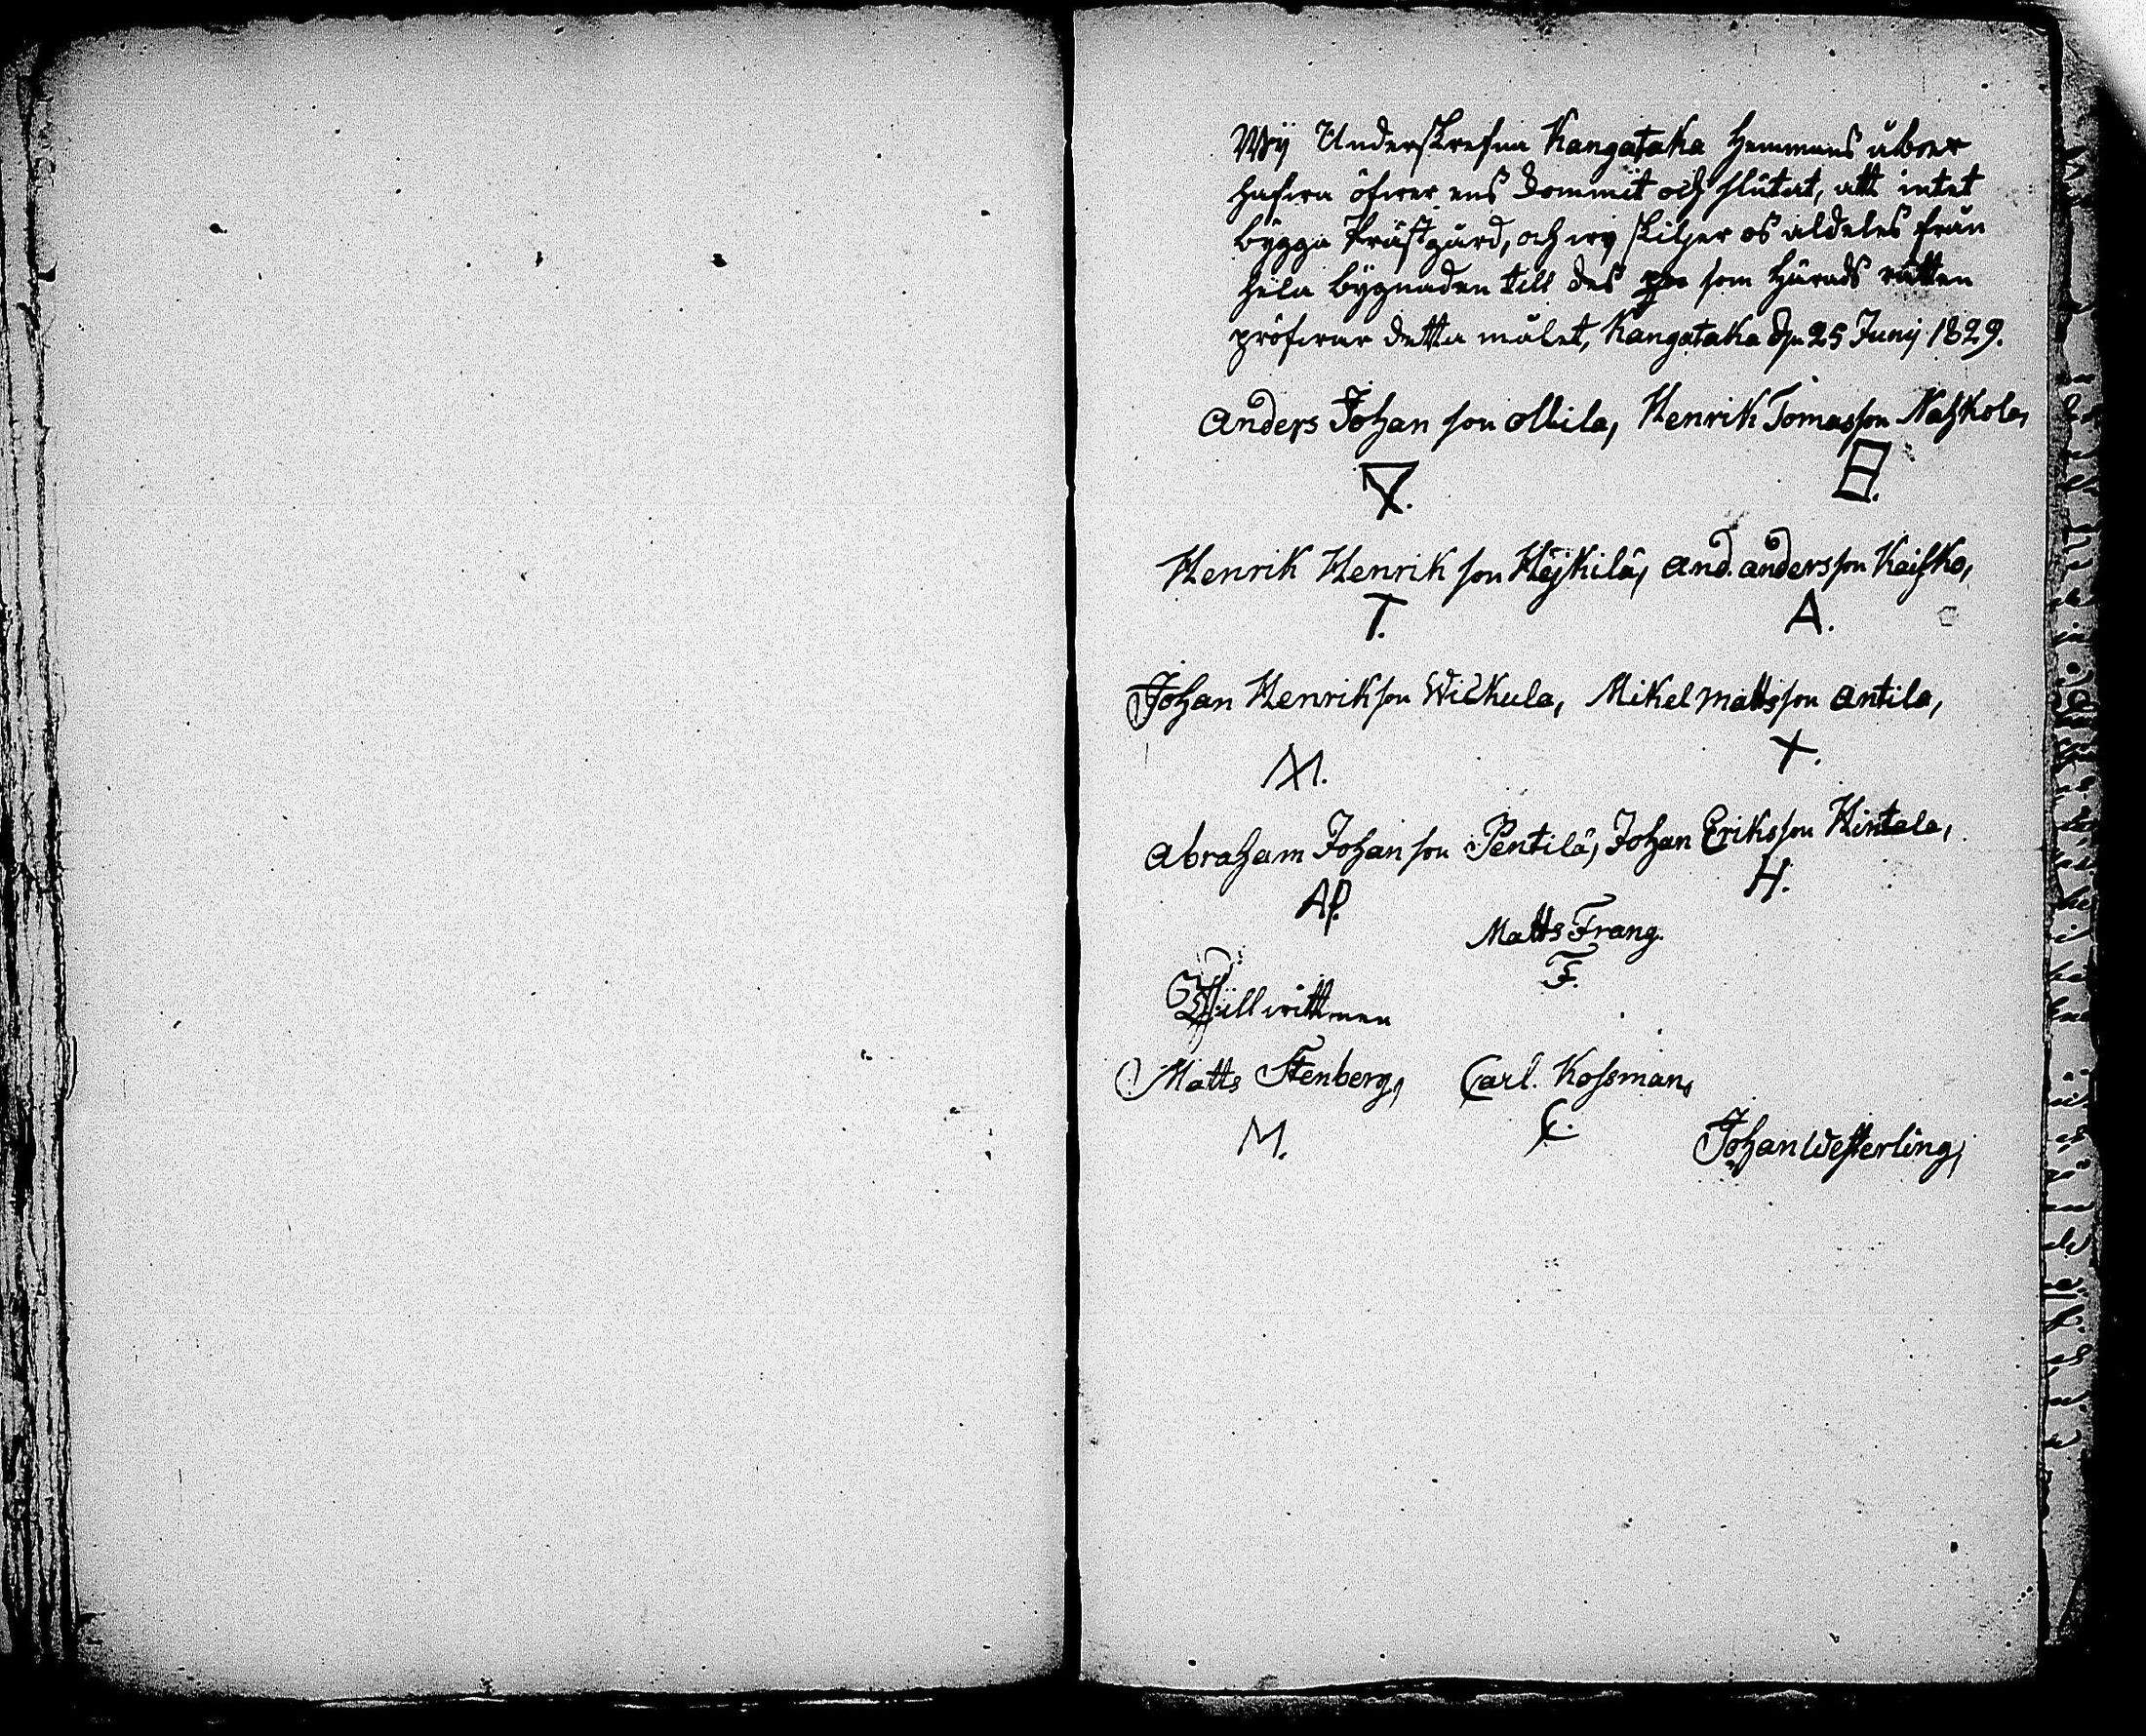 Wÿ Underskrefna Kangataka Hemmans åboer
hafwa öfwer ens kommit och slutat, att intet
bÿgga Prästgård, och wÿ skiljer os aldeles från
hela bÿgnaden till des som Härads rätten
pröfwar detta målet, Kangataka d: 25 Junij 1829.
Anders Johan son Ollila, Henrik Tomasson Nahkola,
Henrik Henrik son Hejkilä, And. Andersson Kaisko,
T. A.
Johan Henrikson Wickula, Mikel Mattsson Antila,
M. X.
Abraham Johan son Pentilä, Johan Eriksson Hintala,
AP. H.
Matts Frang.
F.
Till wittnen
Matts Stenberg, Carl. Kossman,
M. C.
Johan Westerling,